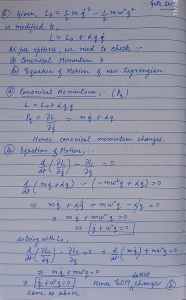 Given, L₀ = ½ m q̇² - ½ mω²q²
is modified to
L = L₀ + αq q̇
we need to check -
(i) Canonical Momentum &
(ii) Equation of Motion of new Lagrangian.
(a) Canonical Momentum, (Pq)
L = L₀ + αq q̇
Pq = ∂L/∂q̇ = mq̇ + αq
Hence canonical momentum changes.
(b) Equation of Motion,
d/dt (∂L/∂q̇) - ∂L/∂q = 0
d/dt (mq̇ + αq) - (-mω²q + αq̇) = 0
⇒ mq̈ + αq̇ + mω²q - αq̇ = 0
⇒ mq̈ + mω²q = 0
⇒ q̈ + ω²q = 0
with L₀,
d/dt (∂L₀/∂q̇) - ∂L₀/∂q = 0 ⇒ d/dt (mq̇) + mω²q = 0
⇒ mq̈ + mω²q = 0
⇒ q̈ + ω²q = 0 Hence EOM changes
same as above